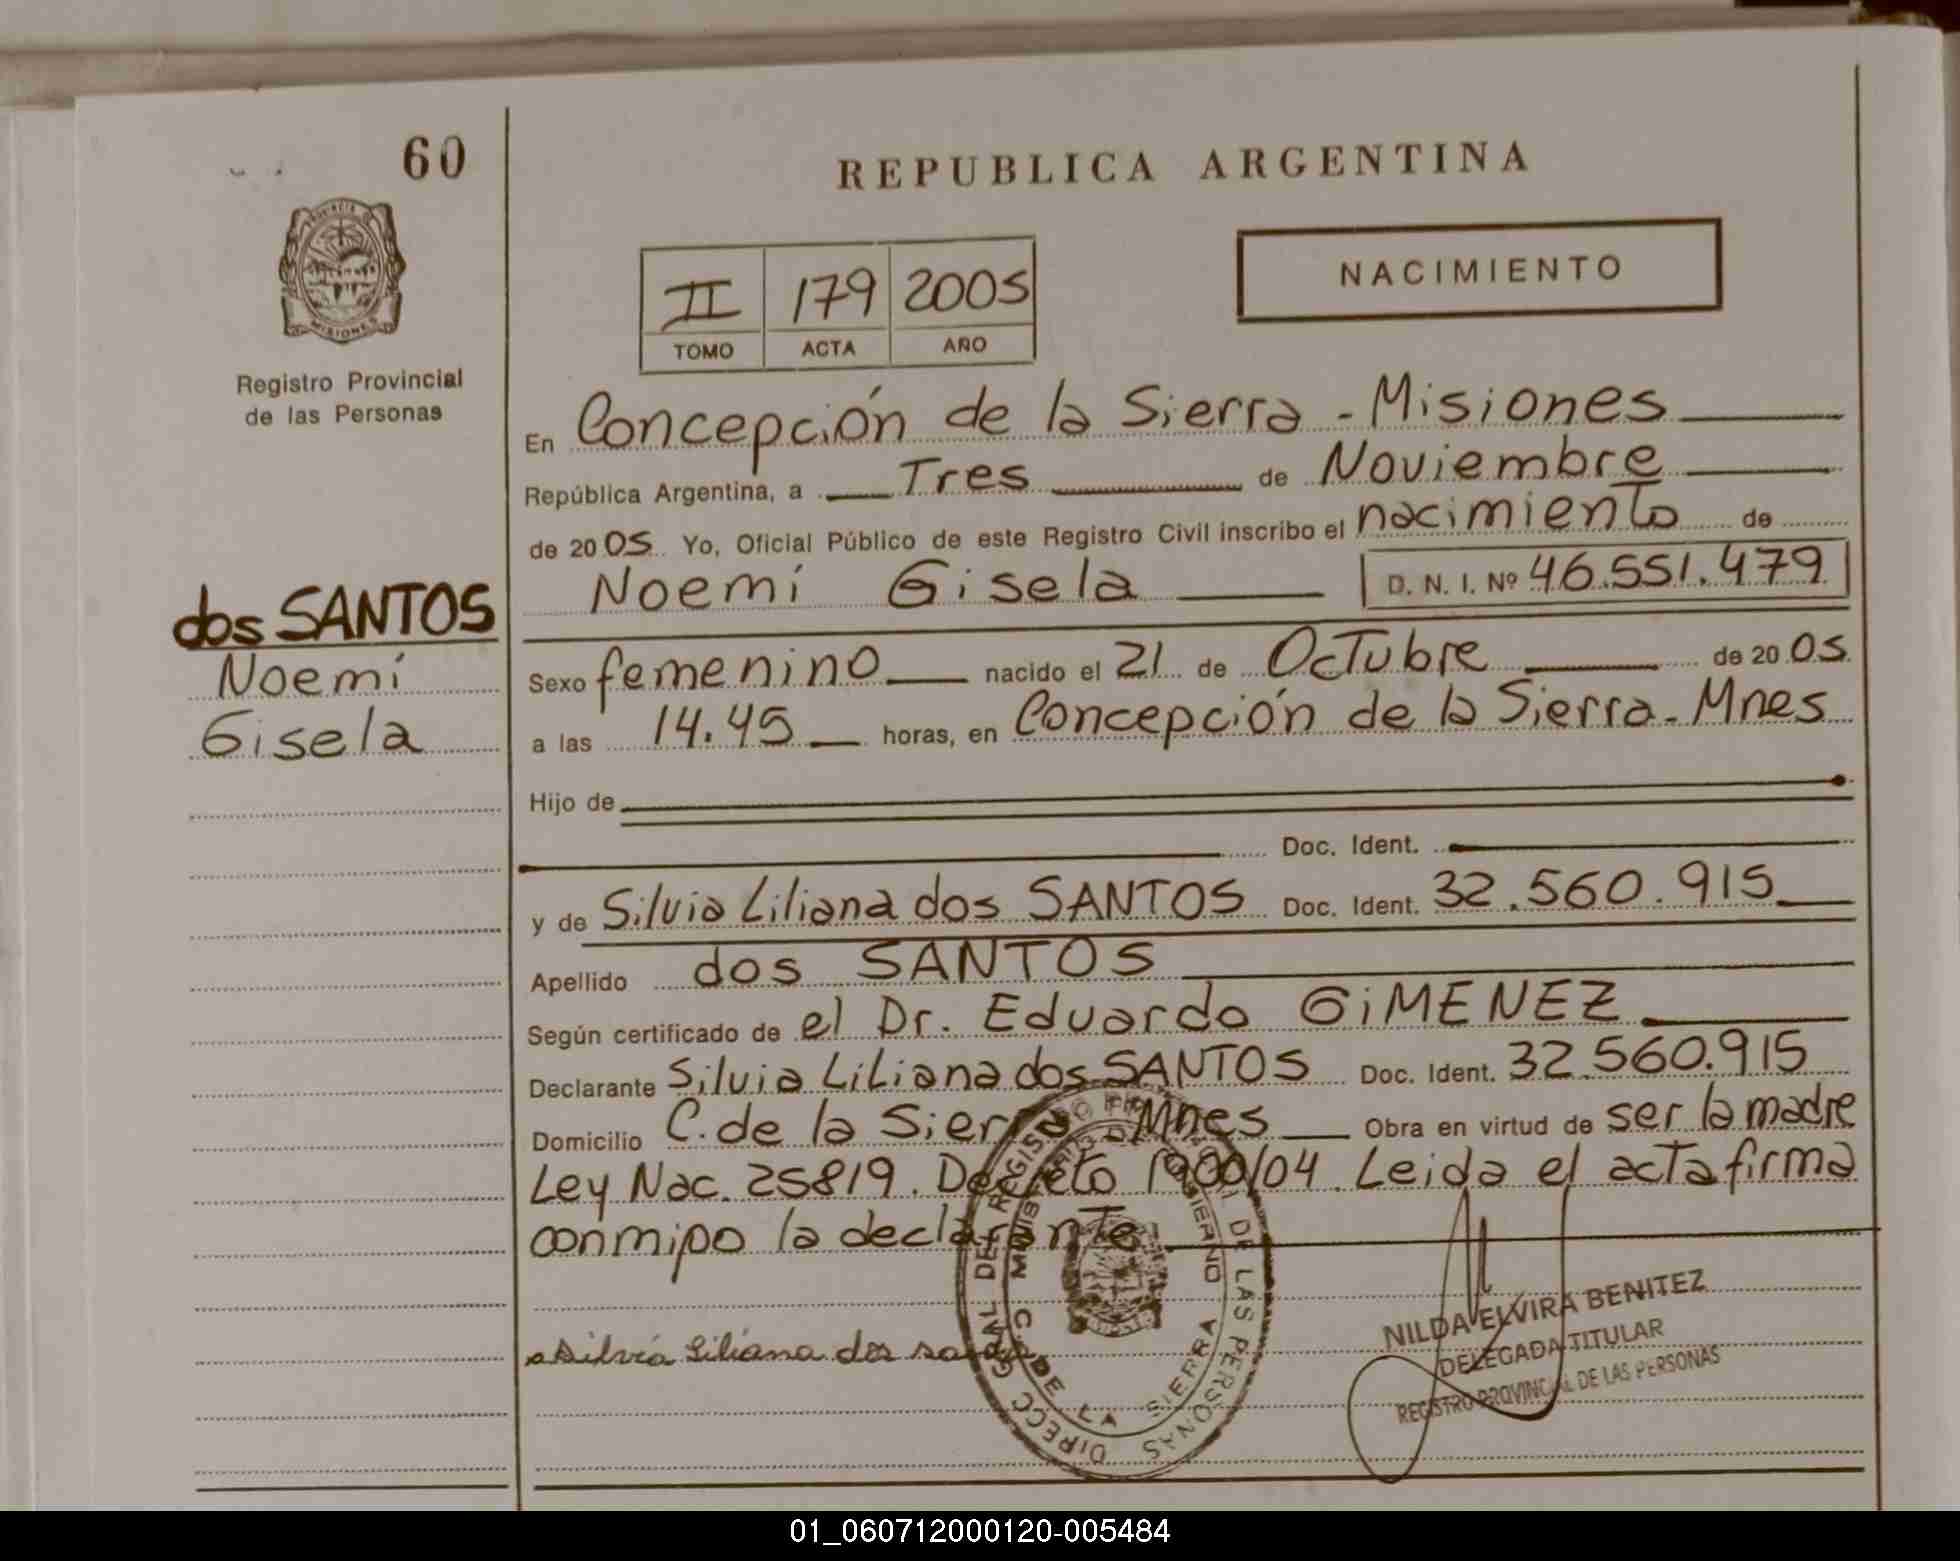 60
REPUBLICA ARGENTINA
PROVINCIA DE
MISIONES
Registro Provincial
de las Personas
II 179 2005
TOMO ACTA AÑO
NACIMIENTO
En Concepción de la Sierra - Misiones
República Argentina, a Tres de Noviembre
de 2005 Yo, Oficial Público de este Registro Civil inscribo el nacimiento de
Noemí Gisela D. N. I. Nº 46.551.479
dos SANTOS
Noemí
Gisela
Sexo femenino nacido el 21 de Octubre de 2005
a las 14.45 horas, en Concepción de la Sierra - Mnes
Hijo de
Doc. Ident.
y de Silvia Liliana dos SANTOS Doc. Ident. 32.560.915
Apellido dos SANTOS
Según certificado de el Dr. Eduardo GiMENEZ
Declarante Silvia Liliana dos SANTOS Doc. Ident. 32.560.915
Domicilio C. de la Sierra - Mnes Obra en virtud de ser la madre
Ley Nac. 25819. Decreto 1900/04. Leida el acta firma
conmigo la declarante
Silvia Liliana dos san
DE LAS PERSONAS
C. DE LA SIERRA
NILDA ELVIRA BENITEZ
DELEGADA TITULAR
REGISTRO PROVINCIAL DE LAS PERSONAS
01_060712000120-005484